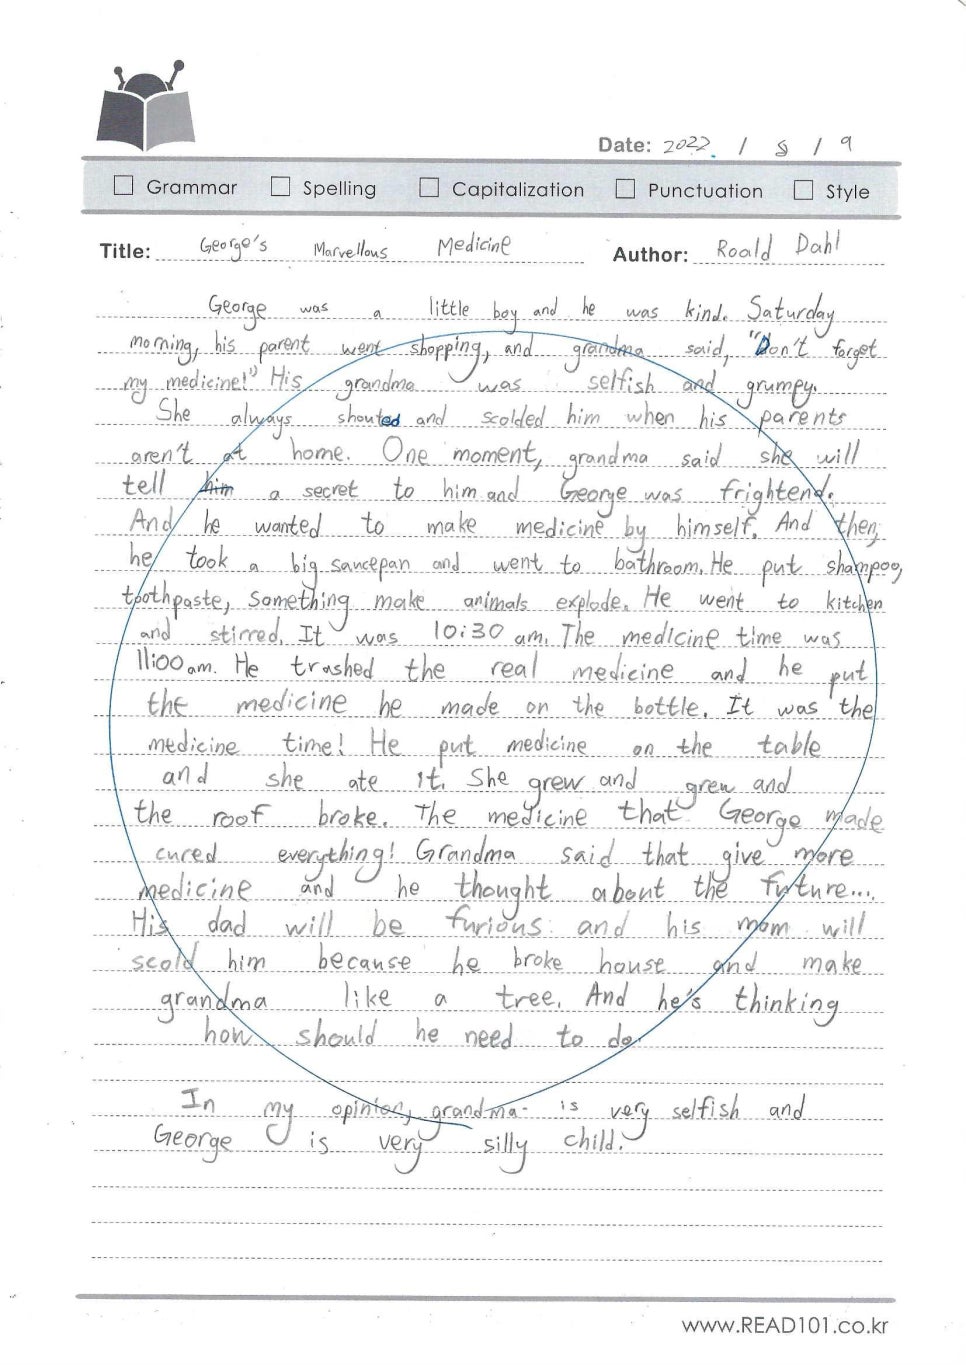 Date: 2022. / 8 / 9
Grammar Spelling Capitalization Punctuation Style
Title: George's Marvellous Medicine Author: Roald Dahl
George was a little boy and he was kind. Saturday
morning, his parent went shopping, and grandma said, "Don't forget
my medicine!" His grandma was selfish and grumpy.
She always shouted and scolded him when his parents
aren't at home. One moment, grandma said she will
tell him a secret to him and George was frightend.
And he wanted to make medicine by himself. And then,
he took a big saucepan and went to bathroom. He put shampoo,
toothpaste, something make animals explode. He went to kitchen
and stirred. It was 10:30 am. The medicine time was
11:00 am. He trashed the real medicine and he put
the medicine he made on the bottle. It was the
medicine time! He put medicine on the table
and she ate it. She grew and grew and
the roof broke. The medicine that George made
cured everything! Grandma said that give more
medicine and he thought about the future...
His dad will be furious and his mom will
scold him because he broke house and make
grandma like a tree. And he's thinking
how should he need to do.
In my opinion, grandma is very selfish and
George is very silly child.
www.READ101.co.kr